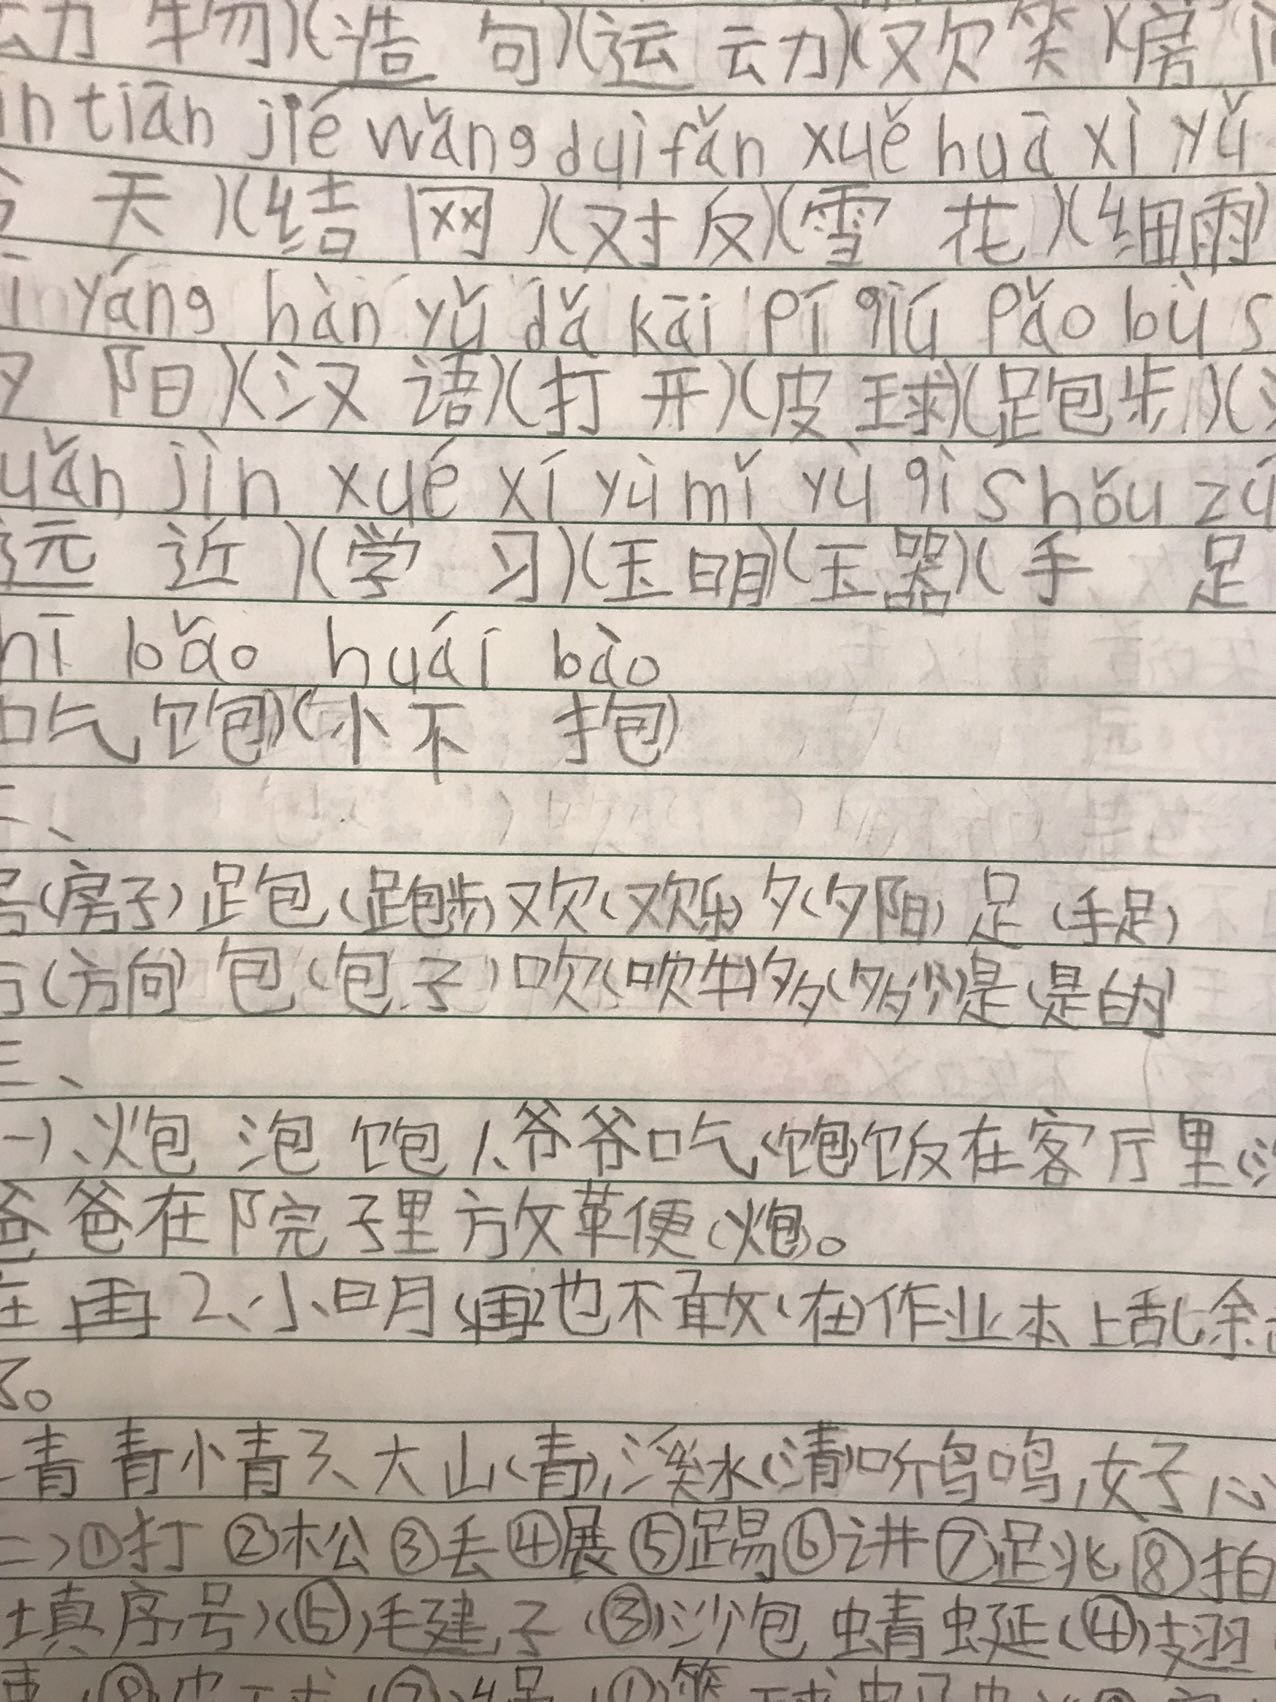 动 物)(造 句)(运 动)(欢 笑)(房
in tiān jié wǎng duì fǎn xuě huā xì yǔ
天)(结 网)(对 反)(雪 花)(细 雨)
yáng hàn yǔ dǎ kāi pí qiú pǎo bù s
夕 阳)(汉 语)(打 开)(皮 球)(跑 步)(
uǎn jìn xué xí yù mǐ yù qì shǒu zú
远 近)(学 习)(玉 明)(玉 器)(手 足
hī bǎo huái bào
吃 饱)(怀 抱)
二、
(房子) 跑(跑步) 欢(欢乐) 夕(夕阳) 足(手足)
方(方向) 包(包子) 吹(吹牛) 多(多少) 是(是的)
三、
一)、炮 泡 饱 1、爷爷吃(饱)饭在客厅里(
爸爸在院子里放革便(炮)。
在 再 2、小明(再)也不敢(在)作业本上乱涂
了。
青 小青 3、大山(青),溪水(清)吟鸟鸣,女子心
二)①打 ②松 ③丢 ④展 ⑤踢 ⑥讲 ⑦跳 ⑧拍
填序号)(⑤)毛建子 (③)沙包 蜻蜓(④)翅
(⑧)皮球(⑦)绳(①)篮球